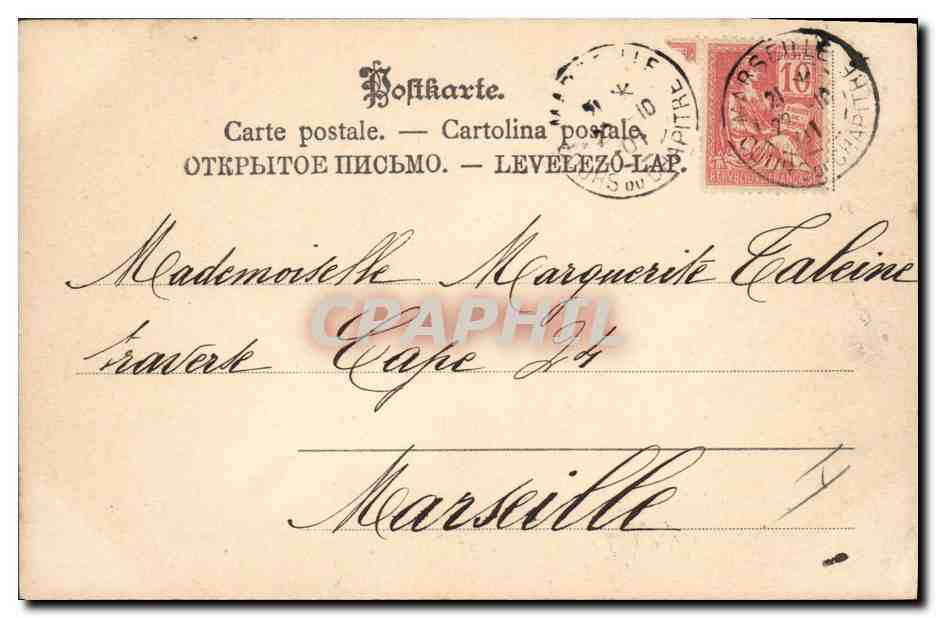 Postkarte.
Carte postale. — Cartolina postale.
ОТКРЫТОЕ ПИСЬМО. — LEVELEZŐ-LAP.
MARSEILLE
COURS DU CHAPITRE
10
RÉPUBLIQUE FRANÇAISE
MARSEILLE
COURS DU CHAPITRE
Mademoiselle Marguerite Taleine
traverse Cape 24
Marseille
CPAPHIL